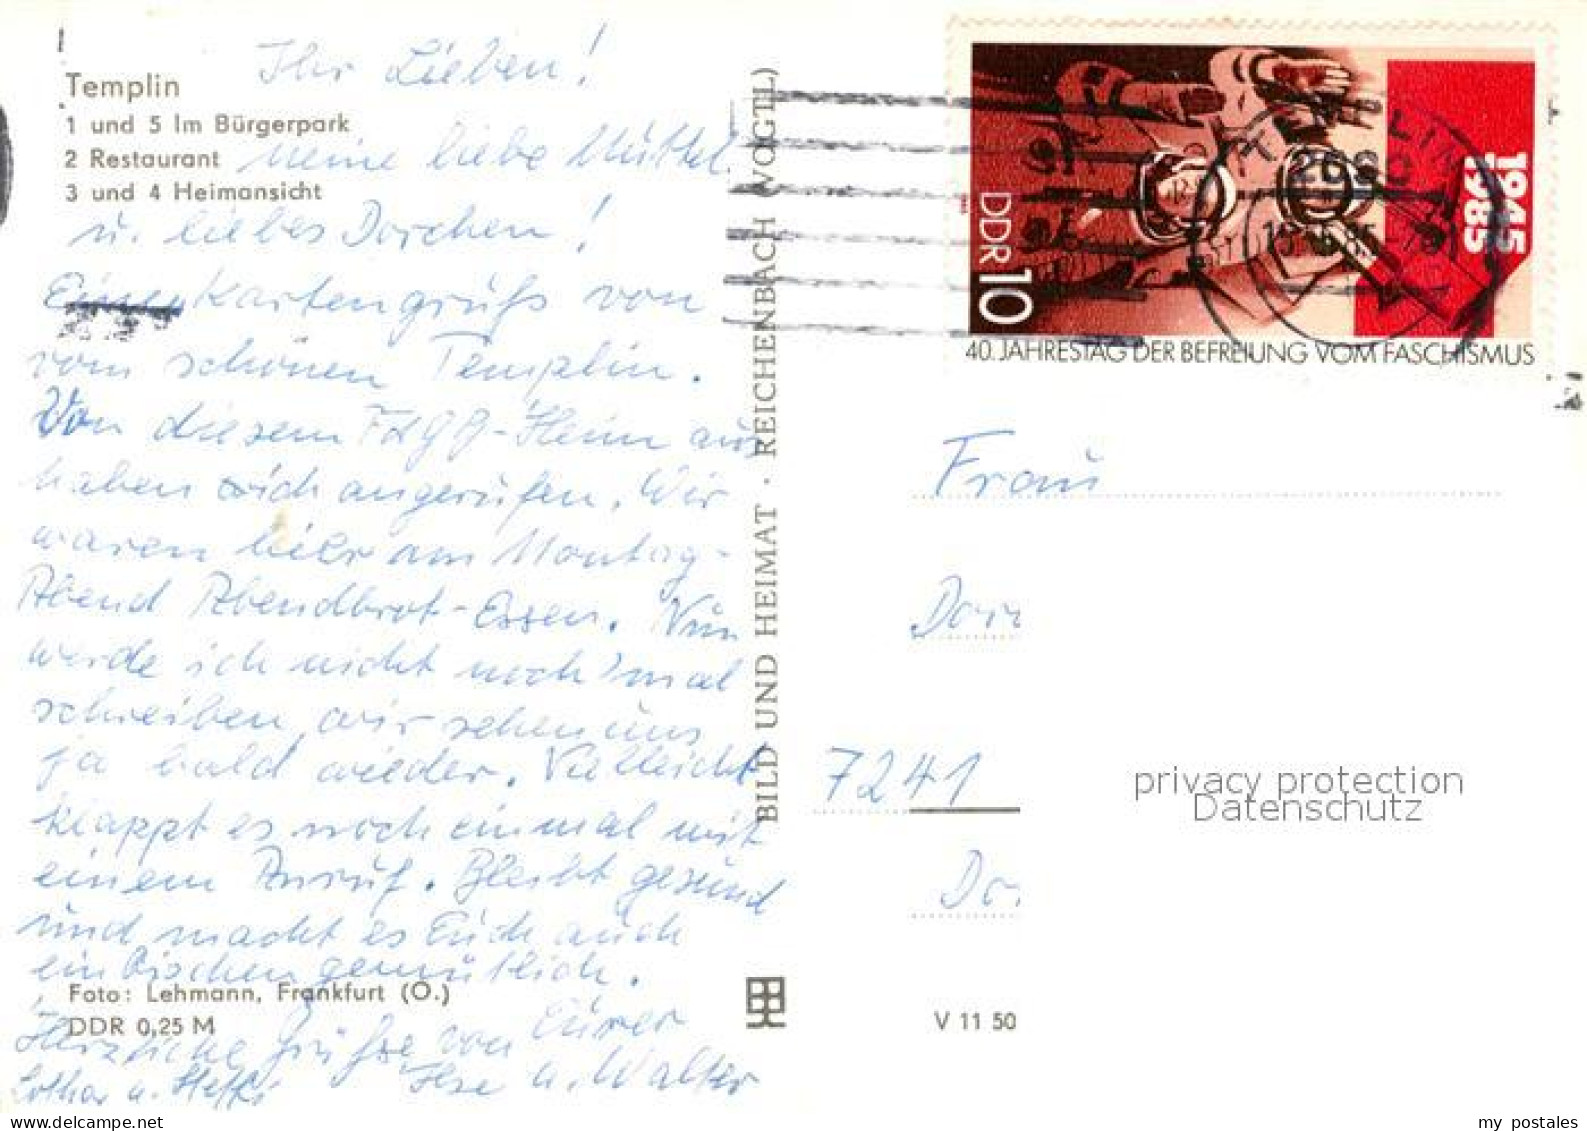 Ihr Lieben!
Templin
1 und 5 Im Bürgerpark
2 Restaurant
3 und 4 Heimansicht
meine liebe Mutter
u. liebes Dorchen!
Einen Kartengruß von
vom schönen Templin.
Von diesem FDGB-Heim aus
haben wich angerufen. Wir
waren hier am Montag-
Abend Abendbrot-Essen. Nun
werde ich nicht noch'mal
schreiben, wir sehen uns
ja bald wieder. Vielleicht
klappt es noch einmal mit
einem Anruf. Bleibt gesund
und macht es Euch auch
ein bischen gemütlich.
Foto: Lehmann, Frankfurt (O.)
DDR 0,25 M
Herzliche Grüße von Eurer
Lothar u. Ilse u. Walter
BILD UND HEIMAT · REICHENBACH (VOGTL)
V 11 50
1945
1985
DDR 10
40. JAHRESTAG DER BEFREIUNG VOM FASCHISMUS
TEMPLIN
Frau
7241
privacy protection
Datenschutz
my postales